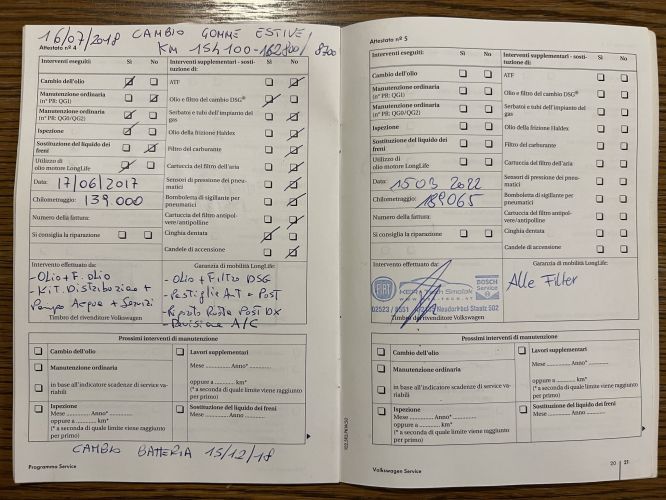 16/07/2018 CAMBIO GOMME ESTIVE/
Attestato nº 4
KM 154100-162800/ 8700
Interventi eseguiti: Sì No
Cambio dell'olio
Manutenzione ordinaria
(nº PR: QG1)
Manutenzione ordinaria
(nº PR: QG0/QG2)
Ispezione
Sostituzione del liquido dei
freni
Utilizzo di
olio motore LongLife
Data: 17/06/2017
Chilometraggio: 139000
Numero della fattura:
Si consiglia la riparazione
Interventi supplementari - sosti-
tuzione di: Sì No
ATF
Olio e filtro del cambio DSG®
Serbatoi e tubi dell'impianto del
gas
Olio della frizione Haldex
Filtro del carburante
Cartuccia del filtro dell'aria
Sensori di pressione dei pneu-
matici
Bomboletta di sigillante per
pneumatici
Cartuccia del filtro antipol-
vere/antipolline
Cinghia dentata
Candele di accensione
Intervento effettuato da:
- Olio + F. olio
- KIT. Distribuzione +
Pompa Acqua + Servizi
Timbro del rivenditore Volkswagen
Garanzia di mobilità LongLife:
- Olio + Filtro DSG
- Pastiglie ANT e POST
- Ruota POST DX
- Revisione A/C
Prossimi interventi di manutenzione
Cambio dell'olio
Manutenzione ordinaria
in base all'indicatore scadenze di service va-
riabili
Ispezione
Mese ............ Anno* ............
oppure a ............ km*
(* a seconda di quale limite viene raggiunto
per primo)
Lavori supplementari
Mese ............ Anno* ............
oppure a ............ km*
(* a seconda di quale limite viene raggiunto
per primo)
Sostituzione del liquido dei freni
Mese ............ Anno ............
CAMBIO BATTERIA 15/12/18
Programma Service
Attestato nº 5
Interventi eseguiti: Sì No
Cambio dell'olio
Manutenzione ordinaria
(nº PR: QG1)
Manutenzione ordinaria
(nº PR: QG0/QG2)
Ispezione
Sostituzione del liquido dei
freni
Utilizzo di
olio motore LongLife
Data: 15 03 2022
Chilometraggio: 189065
Numero della fattura:
Si consiglia la riparazione
Interventi supplementari - sosti-
tuzione di: Sì No
ATF
Olio e filtro del cambio DSG®
Serbatoi e tubi dell'impianto del
gas
Olio della frizione Haldex
Filtro del carburante
Cartuccia del filtro dell'aria
Sensori di pressione dei pneu-
matici
Bomboletta di sigillante per
pneumatici
Cartuccia del filtro antipol-
vere/antipolline
Cinghia dentata
Candele di accensione
Intervento effettuato da:
FIAT
Tech Smolak
BOSCH
Service
02523 / 8551 Neudörfl Staatz 502
Timbro del rivenditore Volkswagen
Garanzia di mobilità LongLife:
Alle Filter
Prossimi interventi di manutenzione
Cambio dell'olio
Manutenzione ordinaria
in base all'indicatore scadenze di service va-
riabili
Ispezione
Mese ............ Anno* ............
oppure a ............ km*
(* a seconda di quale limite viene raggiunto
per primo)
Lavori supplementari
Mese ............ Anno* ............
oppure a ............ km*
(* a seconda di quale limite viene raggiunto
per primo)
Sostituzione del liquido dei freni
Mese ............ Anno ............
Volkswagen Service
20 21